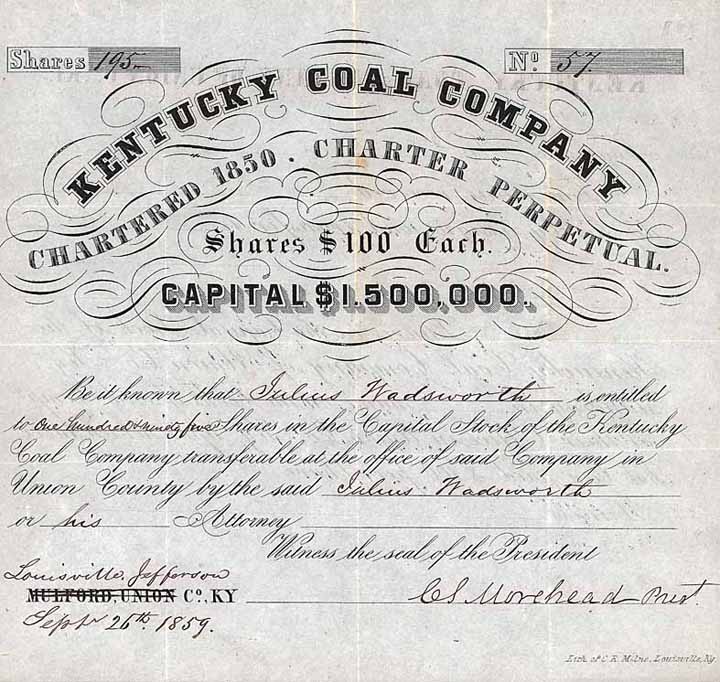 Shares 195 No. 57.
KENTUCKY COAL COMPANY
CHARTERED 1850. CHARTER PERPETUAL.
Shares $100 Each.
CAPITAL $1.500,000.
Be it known that Julius Wadsworth is entitled
to One hundred & ninety five Shares in the Capital Stock of the Kentucky
Coal Company transferable at the office of said Company in
Union County by the said Julius Wadsworth
or his Attorney
Witness the seal of the President
Louisville, Jefferson
MULFORD, UNION Co., KY C S Morehead Prest.
Sept 26th. 1859.
Lith. of C.R. Milne, Louisville, Ky.